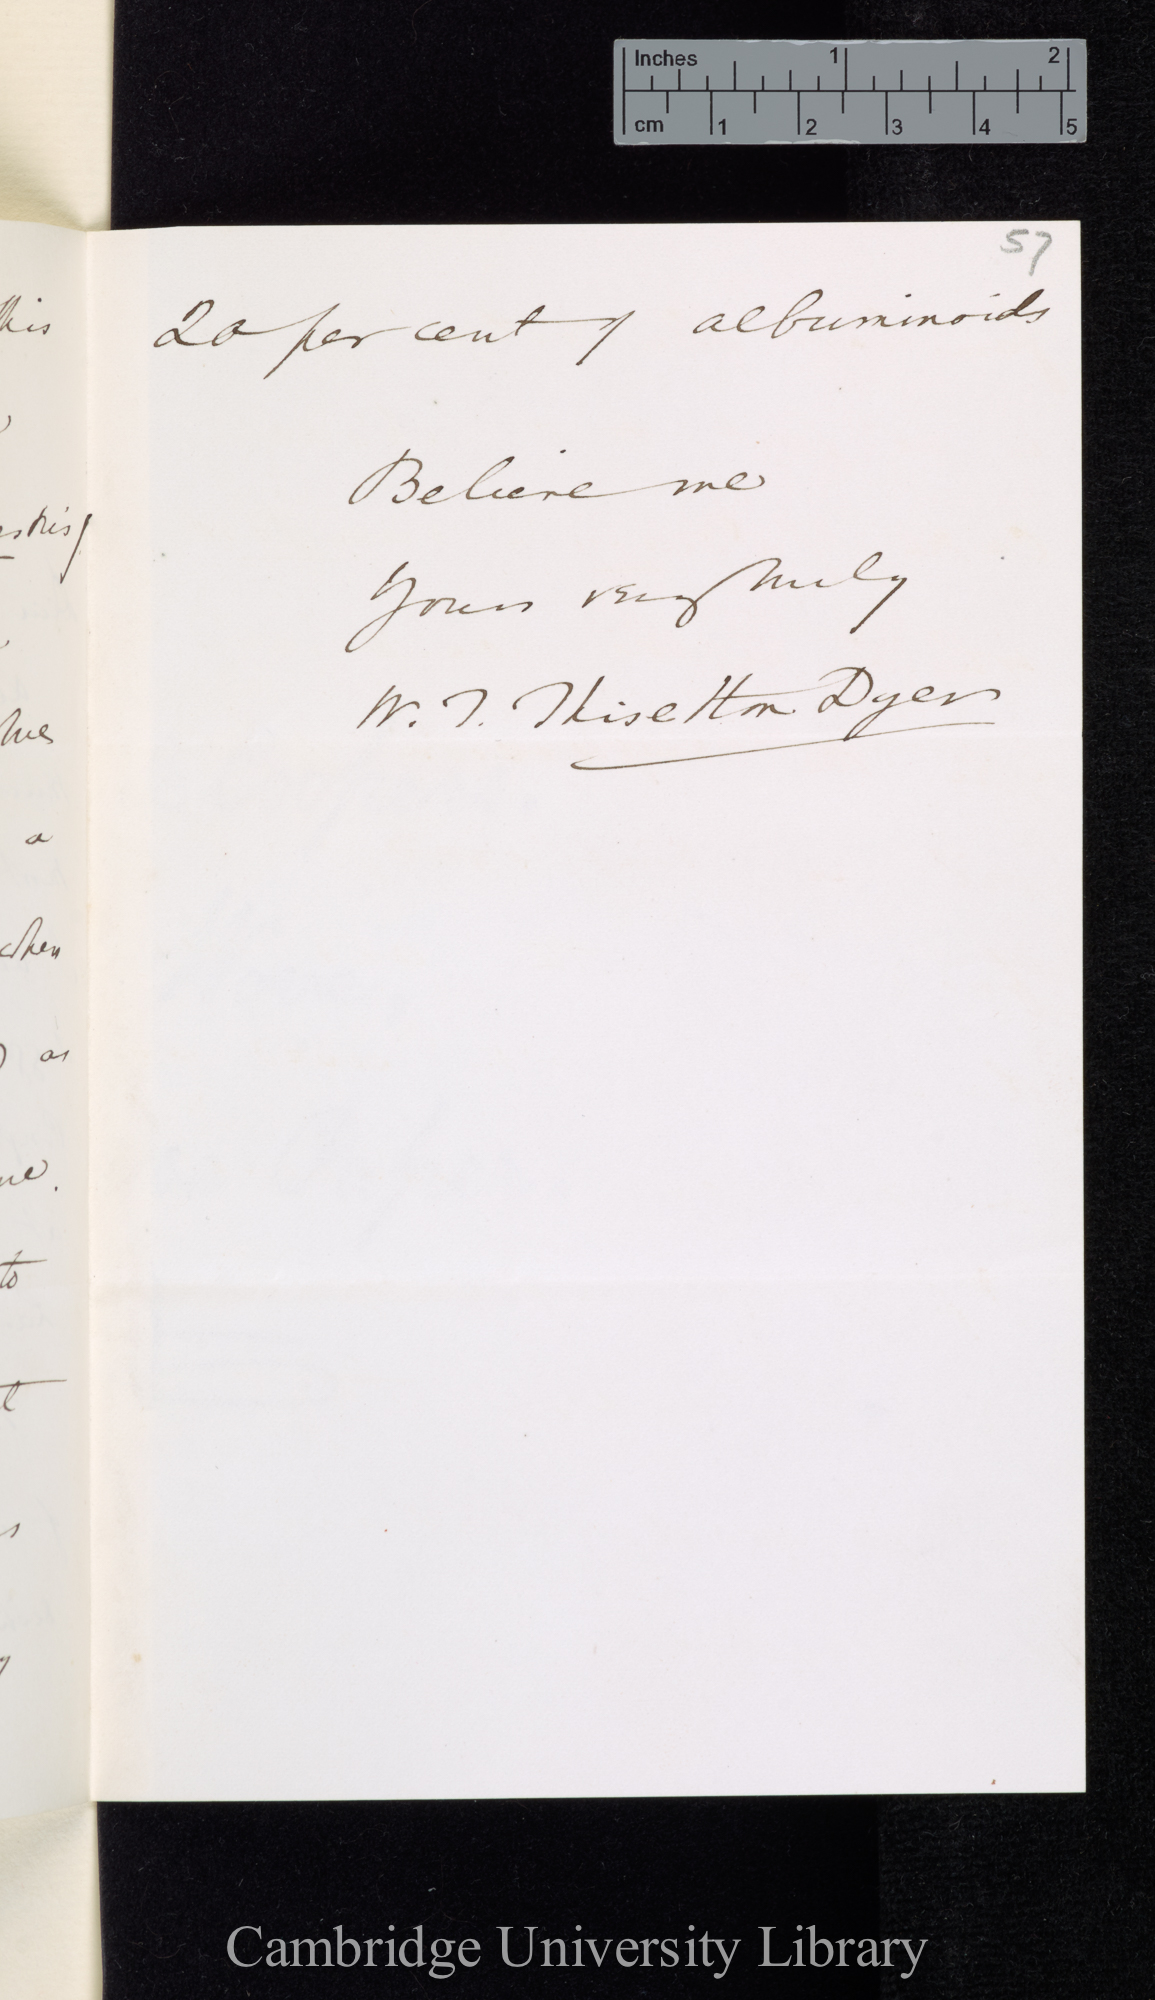 Inches 1 2
cm 1 2 3 4 5
57
this
20 per cent of albuminoids
Believe me
Yours very truly
W. T. Thiselton Dyer
a
when
as
to
Cambridge University Library